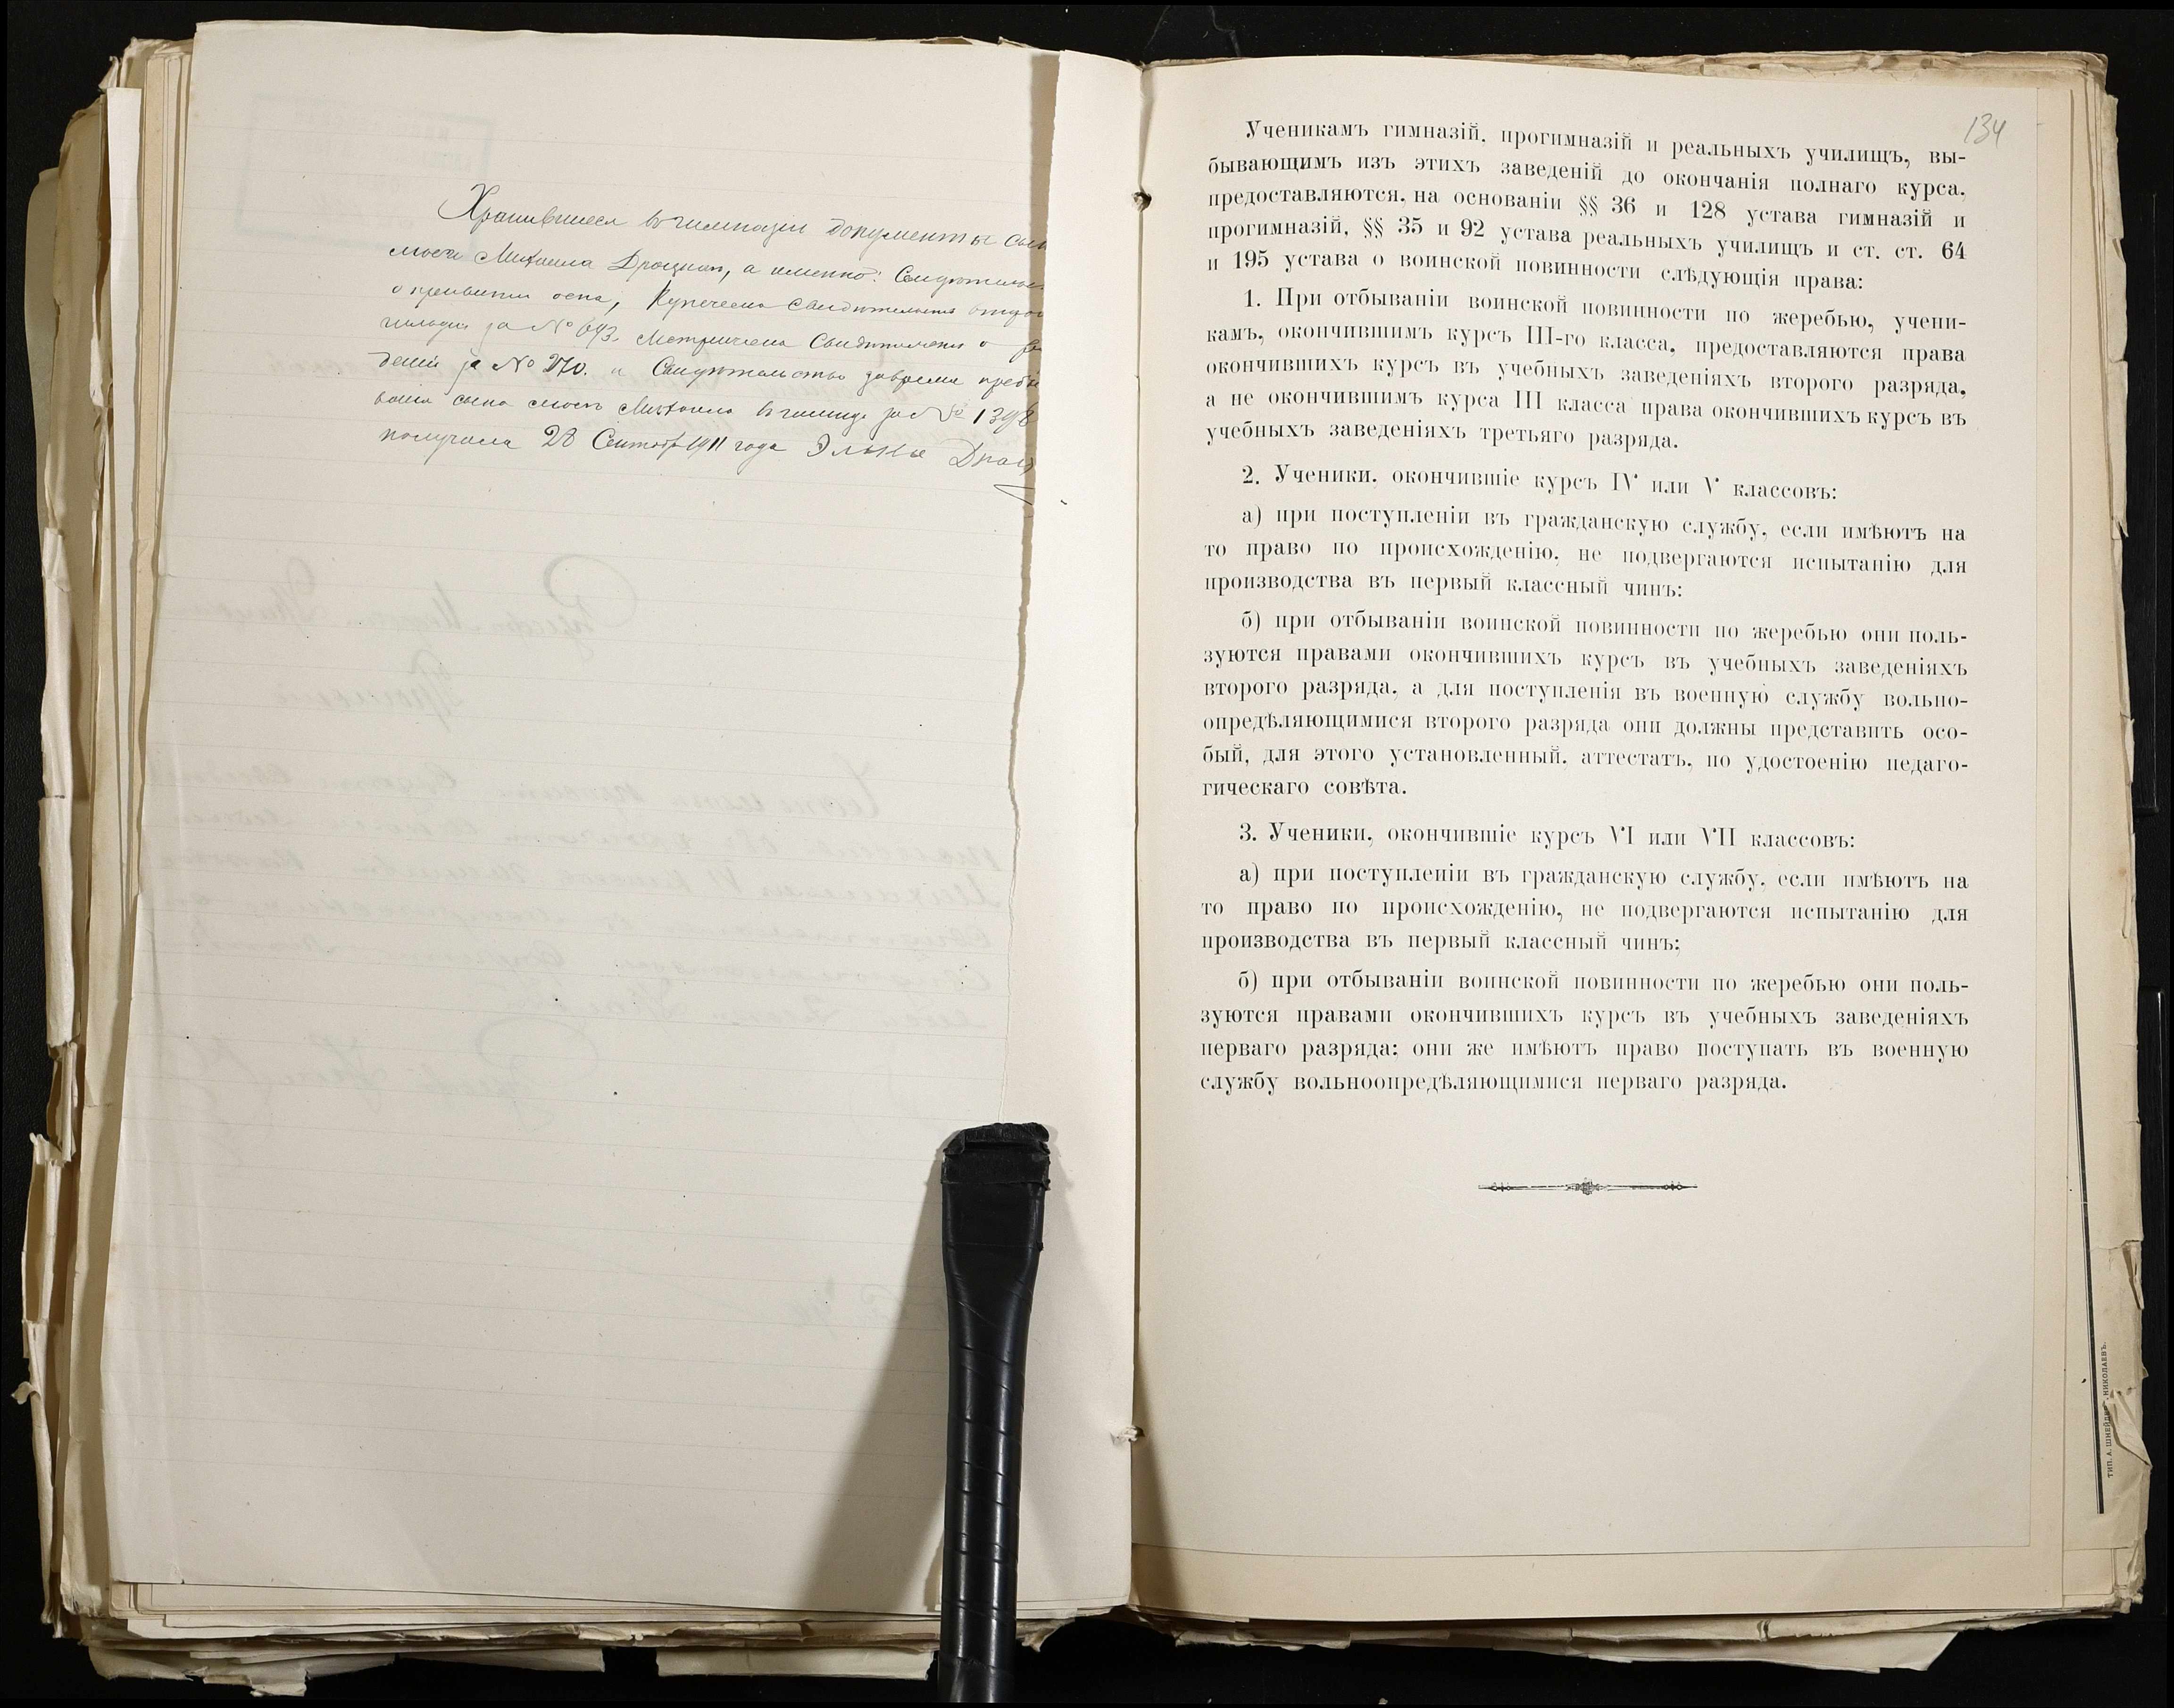 Хранившиеся въ гимназіи документы
моего Михаила а именно:
о оспы, Купеческо
гильдіи за № 643.
за № 270. и Свидѣтельство
сына моего Михаила за № 1398
получила 28 1911 года
134
Ученикамъ гимназій, прогимназій и реальныхъ училищъ, вы-
бывающимъ изъ этихъ заведеній до окончанія полнаго курса,
предоставляются, на основаніи §§ 36 и 128 устава гимназій и
прогимназій, §§ 35 и 92 устава реальныхъ училищъ и ст. ст. 64
и 195 устава о воинской повинности слѣдующія права:
1. При отбываніи воинской повинности по жеребью, учени-
камъ, окончившимъ курсъ III-го класса, предоставляются права
окончившихъ курсъ въ учебныхъ заведеніяхъ второго разряда,
а не окончившимъ курса III класса права окончившихъ курсъ въ
учебныхъ заведеніяхъ третьяго разряда.
2. Ученики, окончившіе курсъ IV или V классовъ:
а) при поступленіи въ гражданскую службу, если имѣютъ на
то право по происхожденію, не подвергаются испытанію для
производства въ первый классный чинъ:
б) при отбываніи воинской повинности по жеребью они поль-
зуются правами окончившихъ курсъ въ учебныхъ заведеніяхъ
второго разряда, а для поступленія въ военную службу вольно-
опредѣляющимися второго разряда они должны представить осо-
бый, для этого установленный, аттестатъ, по удостоенію педаго-
гическаго совѣта.
3. Ученики, окончившіе курсъ VI или VII классовъ:
а) при поступленіи въ гражданскую службу, если имѣютъ на
то право по происхожденію, не подвергаются испытанію для
производства въ первый классный чинъ;
б) при отбываніи воинской повинности по жеребью они поль-
зуются правами окончившихъ курсъ въ учебныхъ заведеніяхъ
перваго разряда; они же имѣютъ право поступать въ военную
службу вольноопредѣляющимися перваго разряда.
ТИП. А. НИКОЛАЕВЪ.